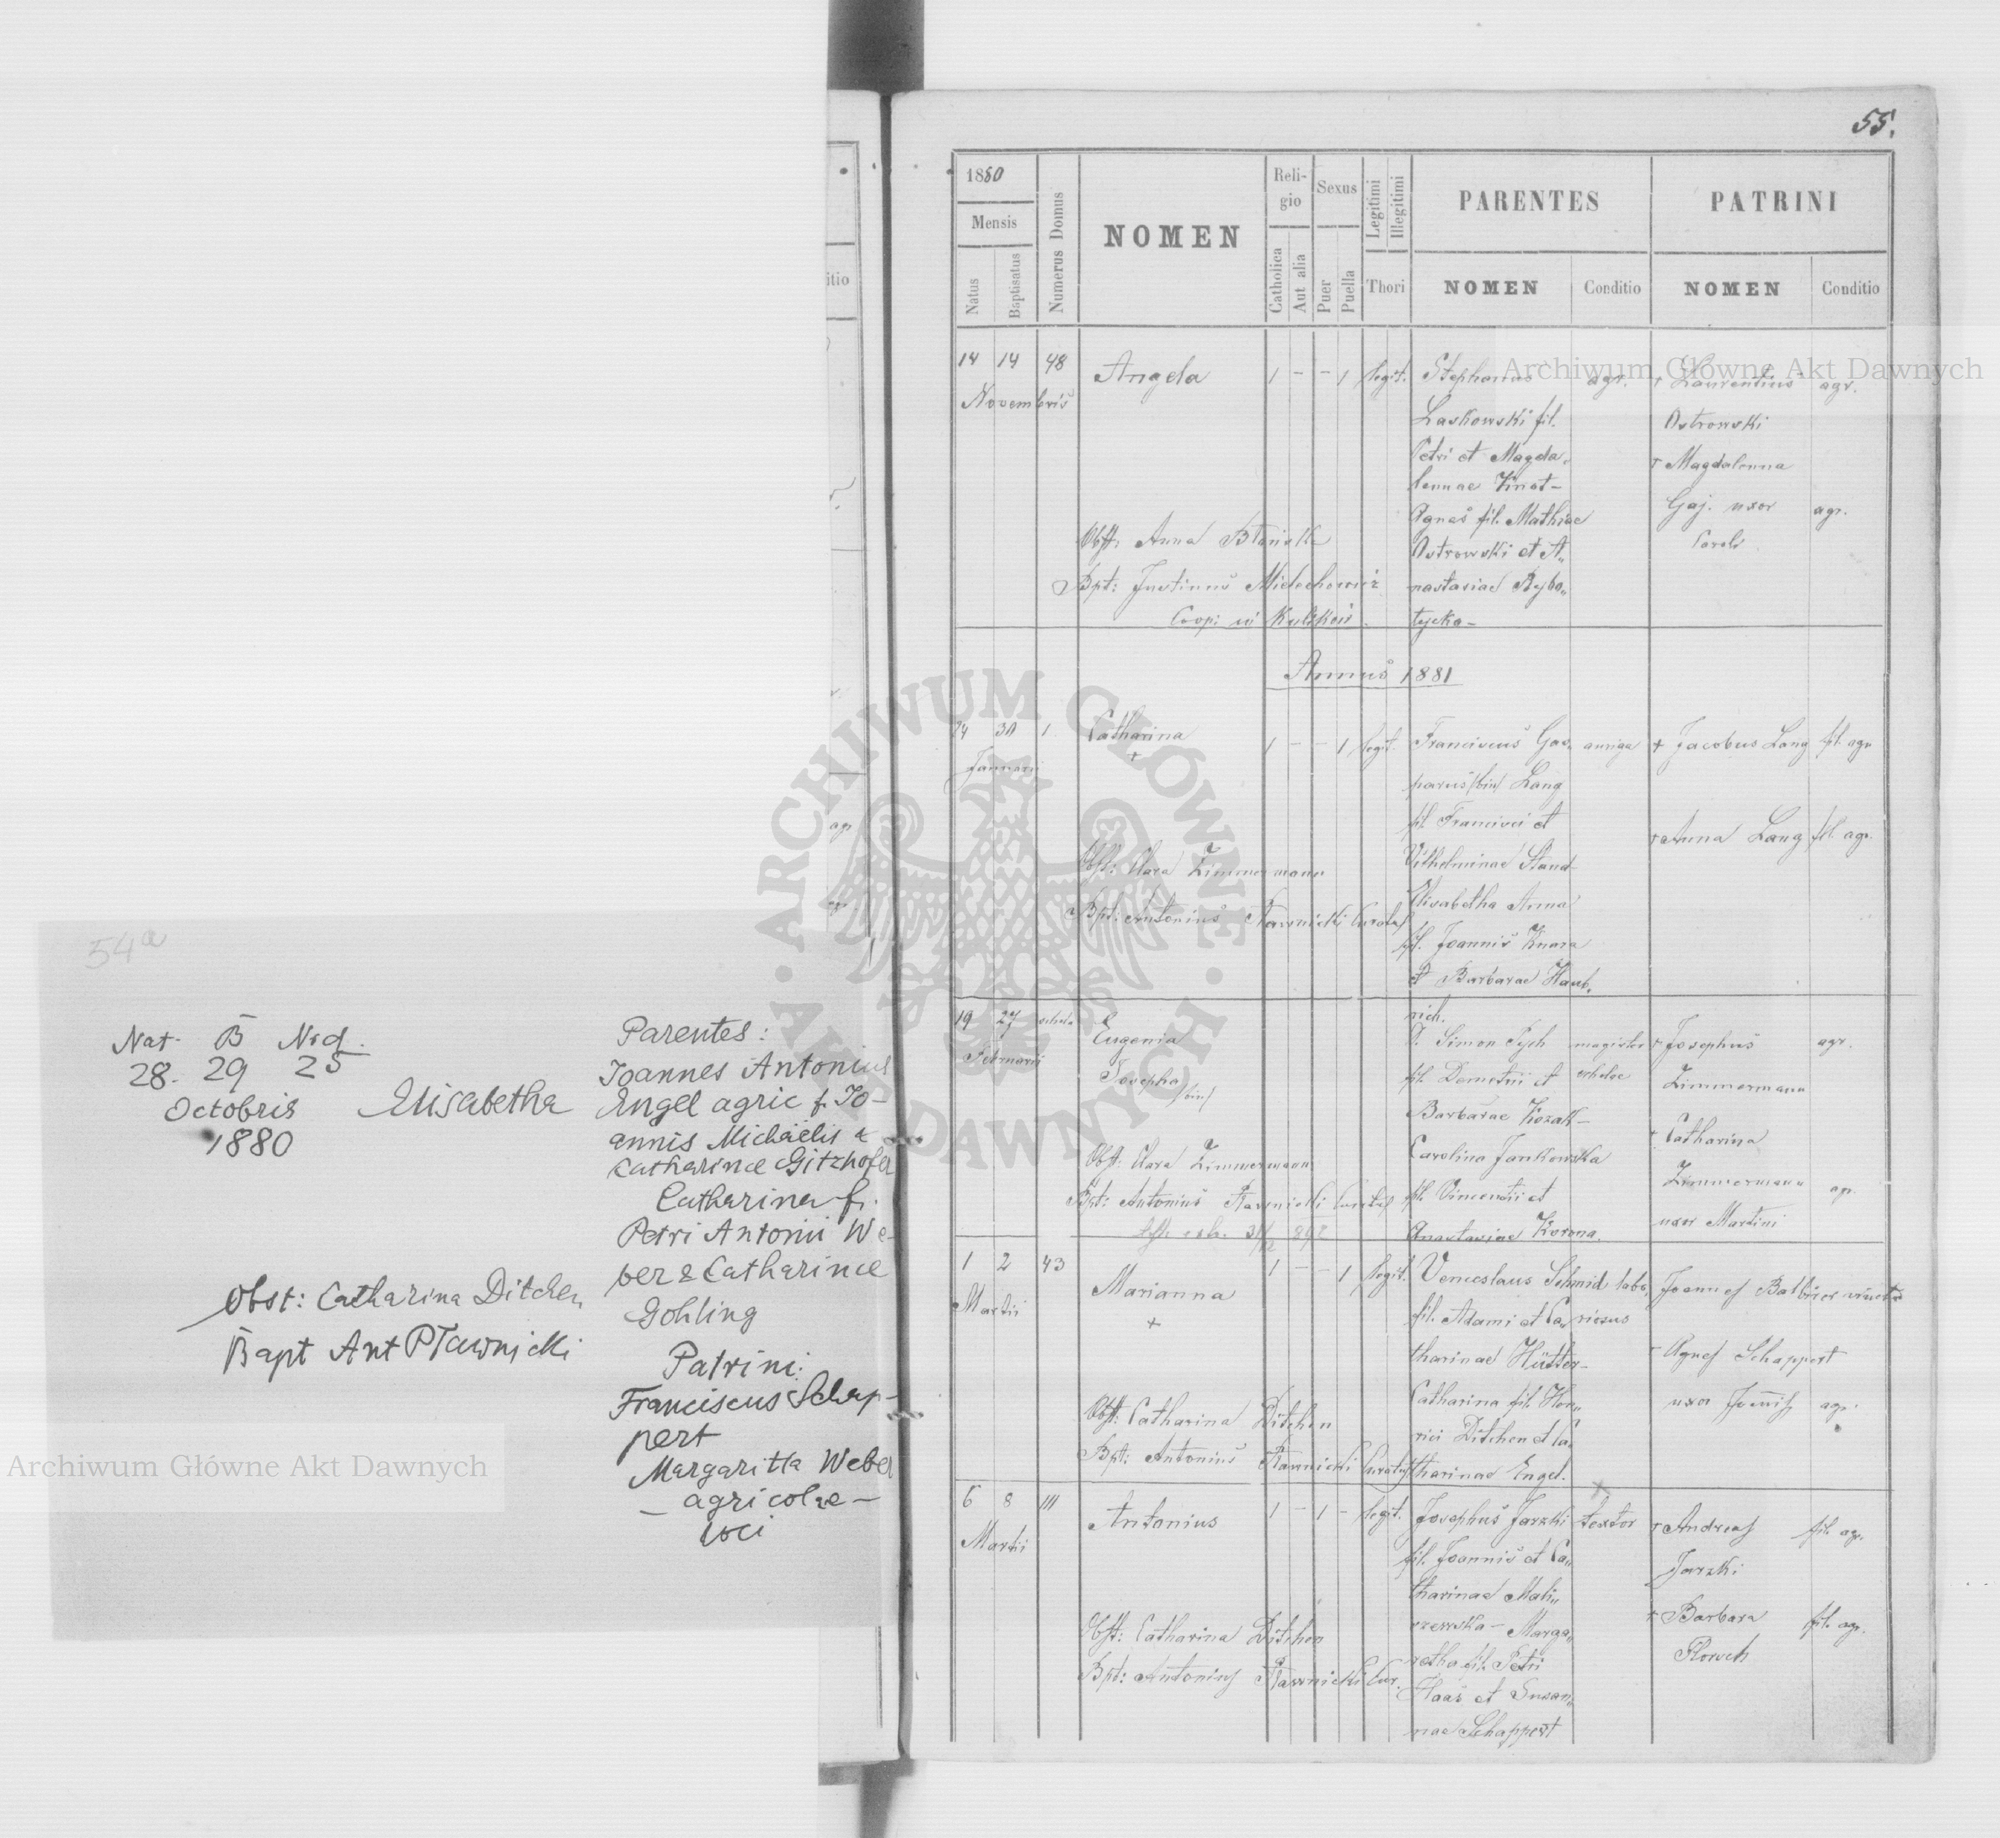 54a
Nat. B Nrd.
28. 29 25
Octobris
1880
Elisabetha
Obst: Catharina Ditchen
Bapt Ant Pławnicki
Parentes:
Joannes Antonius
Engel agric f. Jo-
annis Michaelis &
Catharinae Gitzhofer
Catharina f.
Petri Antonii We-
ber & Catharinae
Gohling
Patrini:
Franciscus Schap-
pert
Margaritta Weber
— agricolae —
loci
itio
55.
1880
Mensis
Natus
Baptisatus
Numerus Domus
NOMEN
Reli-
gio
Catholica
Aut alia
Sexus
Puer
Puella
Legitimi
Illegitimi
Thori
PARENTES
NOMEN
Conditio
PATRINI
NOMEN
Conditio
14 14 48
Novembris
Angela
1 - - 1 legit.
Obst: Anna
Bpt: Justinus Mielechowicz
Coop: in Kulikow
Stephanus agr.
Laskowski fil.
Petri et Magda-
lennae
Agnes fil. Mathiae
Ostrowski et A-
nastasiae Rybo-
tycka -
+ Laurentius agr.
Ostrowski
+ Magdalenna
Gaj. uxor agr.
Caroli
Annus 1881
24 30 1
Januarii
Catharina
+
1 - - 1 legit.
Obst: Clara Zimmermann
Bpt: Antonius Pławnicki Curatus
Franciscus Gas- auriga
parus /bin/ Lang
fil. Francisci et
Vilhelminae Stand-
Elisabetha Anna
fil. Joannis Knara
et Barbarae Haub-
rich.
+ Jacobus Lang fil. agr.
+ Anna Lang fil. agr.
19 27 schola
Februarii
Eugenia
Josepha
/bin/
Obst: Clara Zimmermann
Bpt: Antonius Pławnicki Curatus
D. Simon Pych magister
fil. Demetrii et scholae
Barbarae Kozak-
Carolina Jankowska
fil. Vincentii et
Anastasiae Korona.
+ Josephus agr.
Zimmermann
+ Catharina
Zimmermann agr.
uxor Martini
1 2 43
Martii
Marianna
+
1 - - 1 legit.
Obst: Catharina Ditchen
Bpt: Antonius Pławnicki Curatus
Venceslaus Schmid labo-
fil. Adami et Ca- riosus
tharinae Hütter-
Catharina fil. Hen-
rici Ditchen et Ca-
tharinae Engel.
Joannes
- Agnes Schappert
uxor Joannis agr.
6 8 111
Martii
Antonius
1 - 1 - legit.
Obst: Catharina Ditchen
Bpt: Antonius Pławnicki Cur.
Josephus Jarzki textor
fil. Joannis et Ca-
tharinae Mali-
szewska - Marga-
retha fil. Petri
Haas et Susan-
nae Schappert
+ Andreas fil. agr.
Jarzki
+ Barbara fil. agr.
Archiwum Główne Akt Dawnych
Archiwum Główne Akt Dawnych
ARCHIWUM GŁÓWNE AKT DAWNYCH